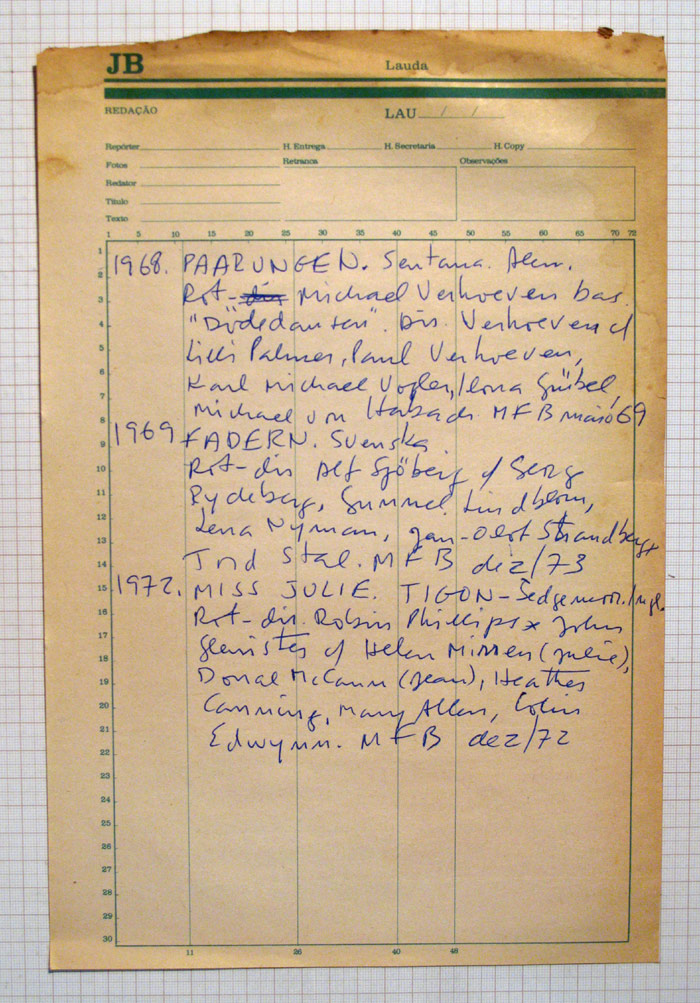 JB
Lauda
REDAÇÃO
LAU / /
Repórter H. Entrega H. Secretaria H. Copy
Fotos Retranca Observações
Redator
Título
Texto
1 5 10 11 15 20 25 26 30 35 40 41 45 48 50 55 60 65 70 72
1968. PAARUNGEN. Sentana. Alem.
Rot-dir Michael Verhoeven bas.
"Dödsdansen". Dir. Verhoeven c/
Lilli Palmer, Paul Verhoeven,
Karl Michael Vogler, Ilona Grübel,
Michael von MFB maio 69
1969 FADERN. Svenska
Rot-dir Alf Sjöberg c/ Georg
Rydeberg, Gunnel Lindblom,
Lena Nyman, Jan-Olof Strandberg,
Stal. MFB dez/73
1972. MISS JULIE. TIGON-Sedgemoor./Ingl.
Rot-dir. Robin Phillips x John
Glenister c/ Helen Mirren (Julie),
Donal McCann (Jean), Heather
Canning, Mary Allen, Colin
Edwynn. MFB dez/72
1
2
3
4
5
6
7
8
9
10
11
12
13
14
15
16
17
18
19
20
21
22
23
24
25
26
27
28
29
30
11 26 40 48